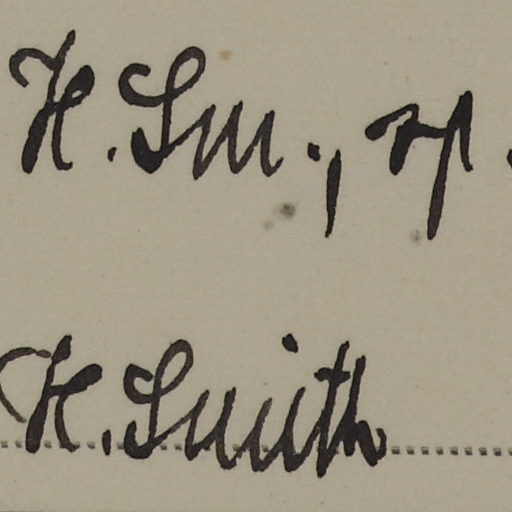 H. Sm., sp.
H. Smith